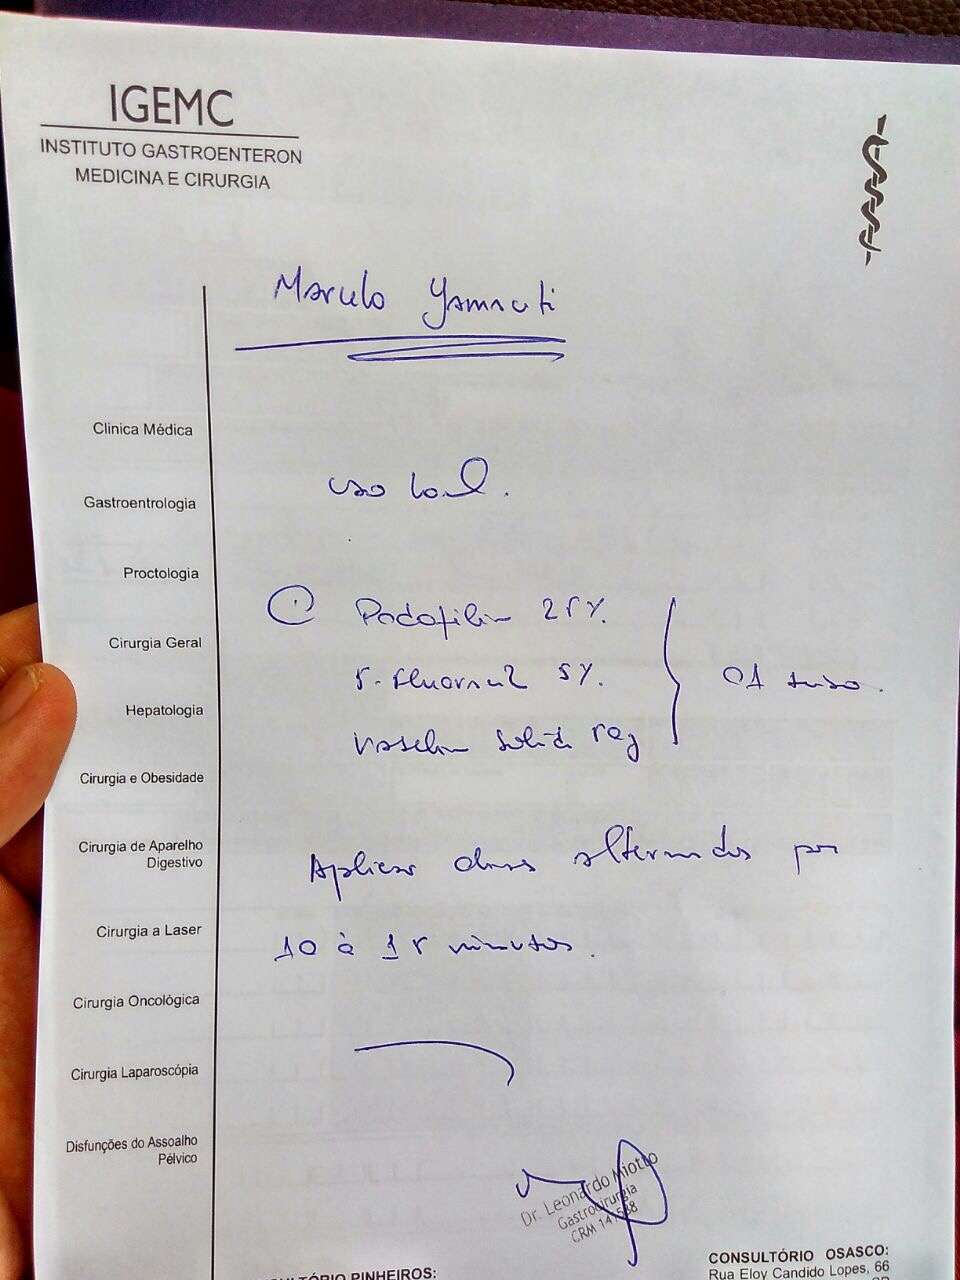 IGEMC
INSTITUTO GASTROENTERON
MEDICINA E CIRURGIA
Marcelo Yamauti
uso local.
Clinica Médica
Gastroentrologia
Proctologia
Cirurgia Geral
Hepatologia
Cirurgia e Obesidade
Cirurgia de Aparelho
Digestivo
Cirurgia a Laser
Cirurgia Oncológica
Cirurgia Laparoscópia
Disfunções do Assoalho
Pélvico
1 Podofilin 25%.
5-Fluoruracil 5%.
Vaselin solida
01
Aplicar dias alternados por
10 à 15 minutos.
Dr. Leonardo Miotto
Gastrocirurgia
CRM
CONSULTÓRIO PINHEIROS:
CONSULTÓRIO OSASCO:
Rua Eloy Candido Lopes, 66